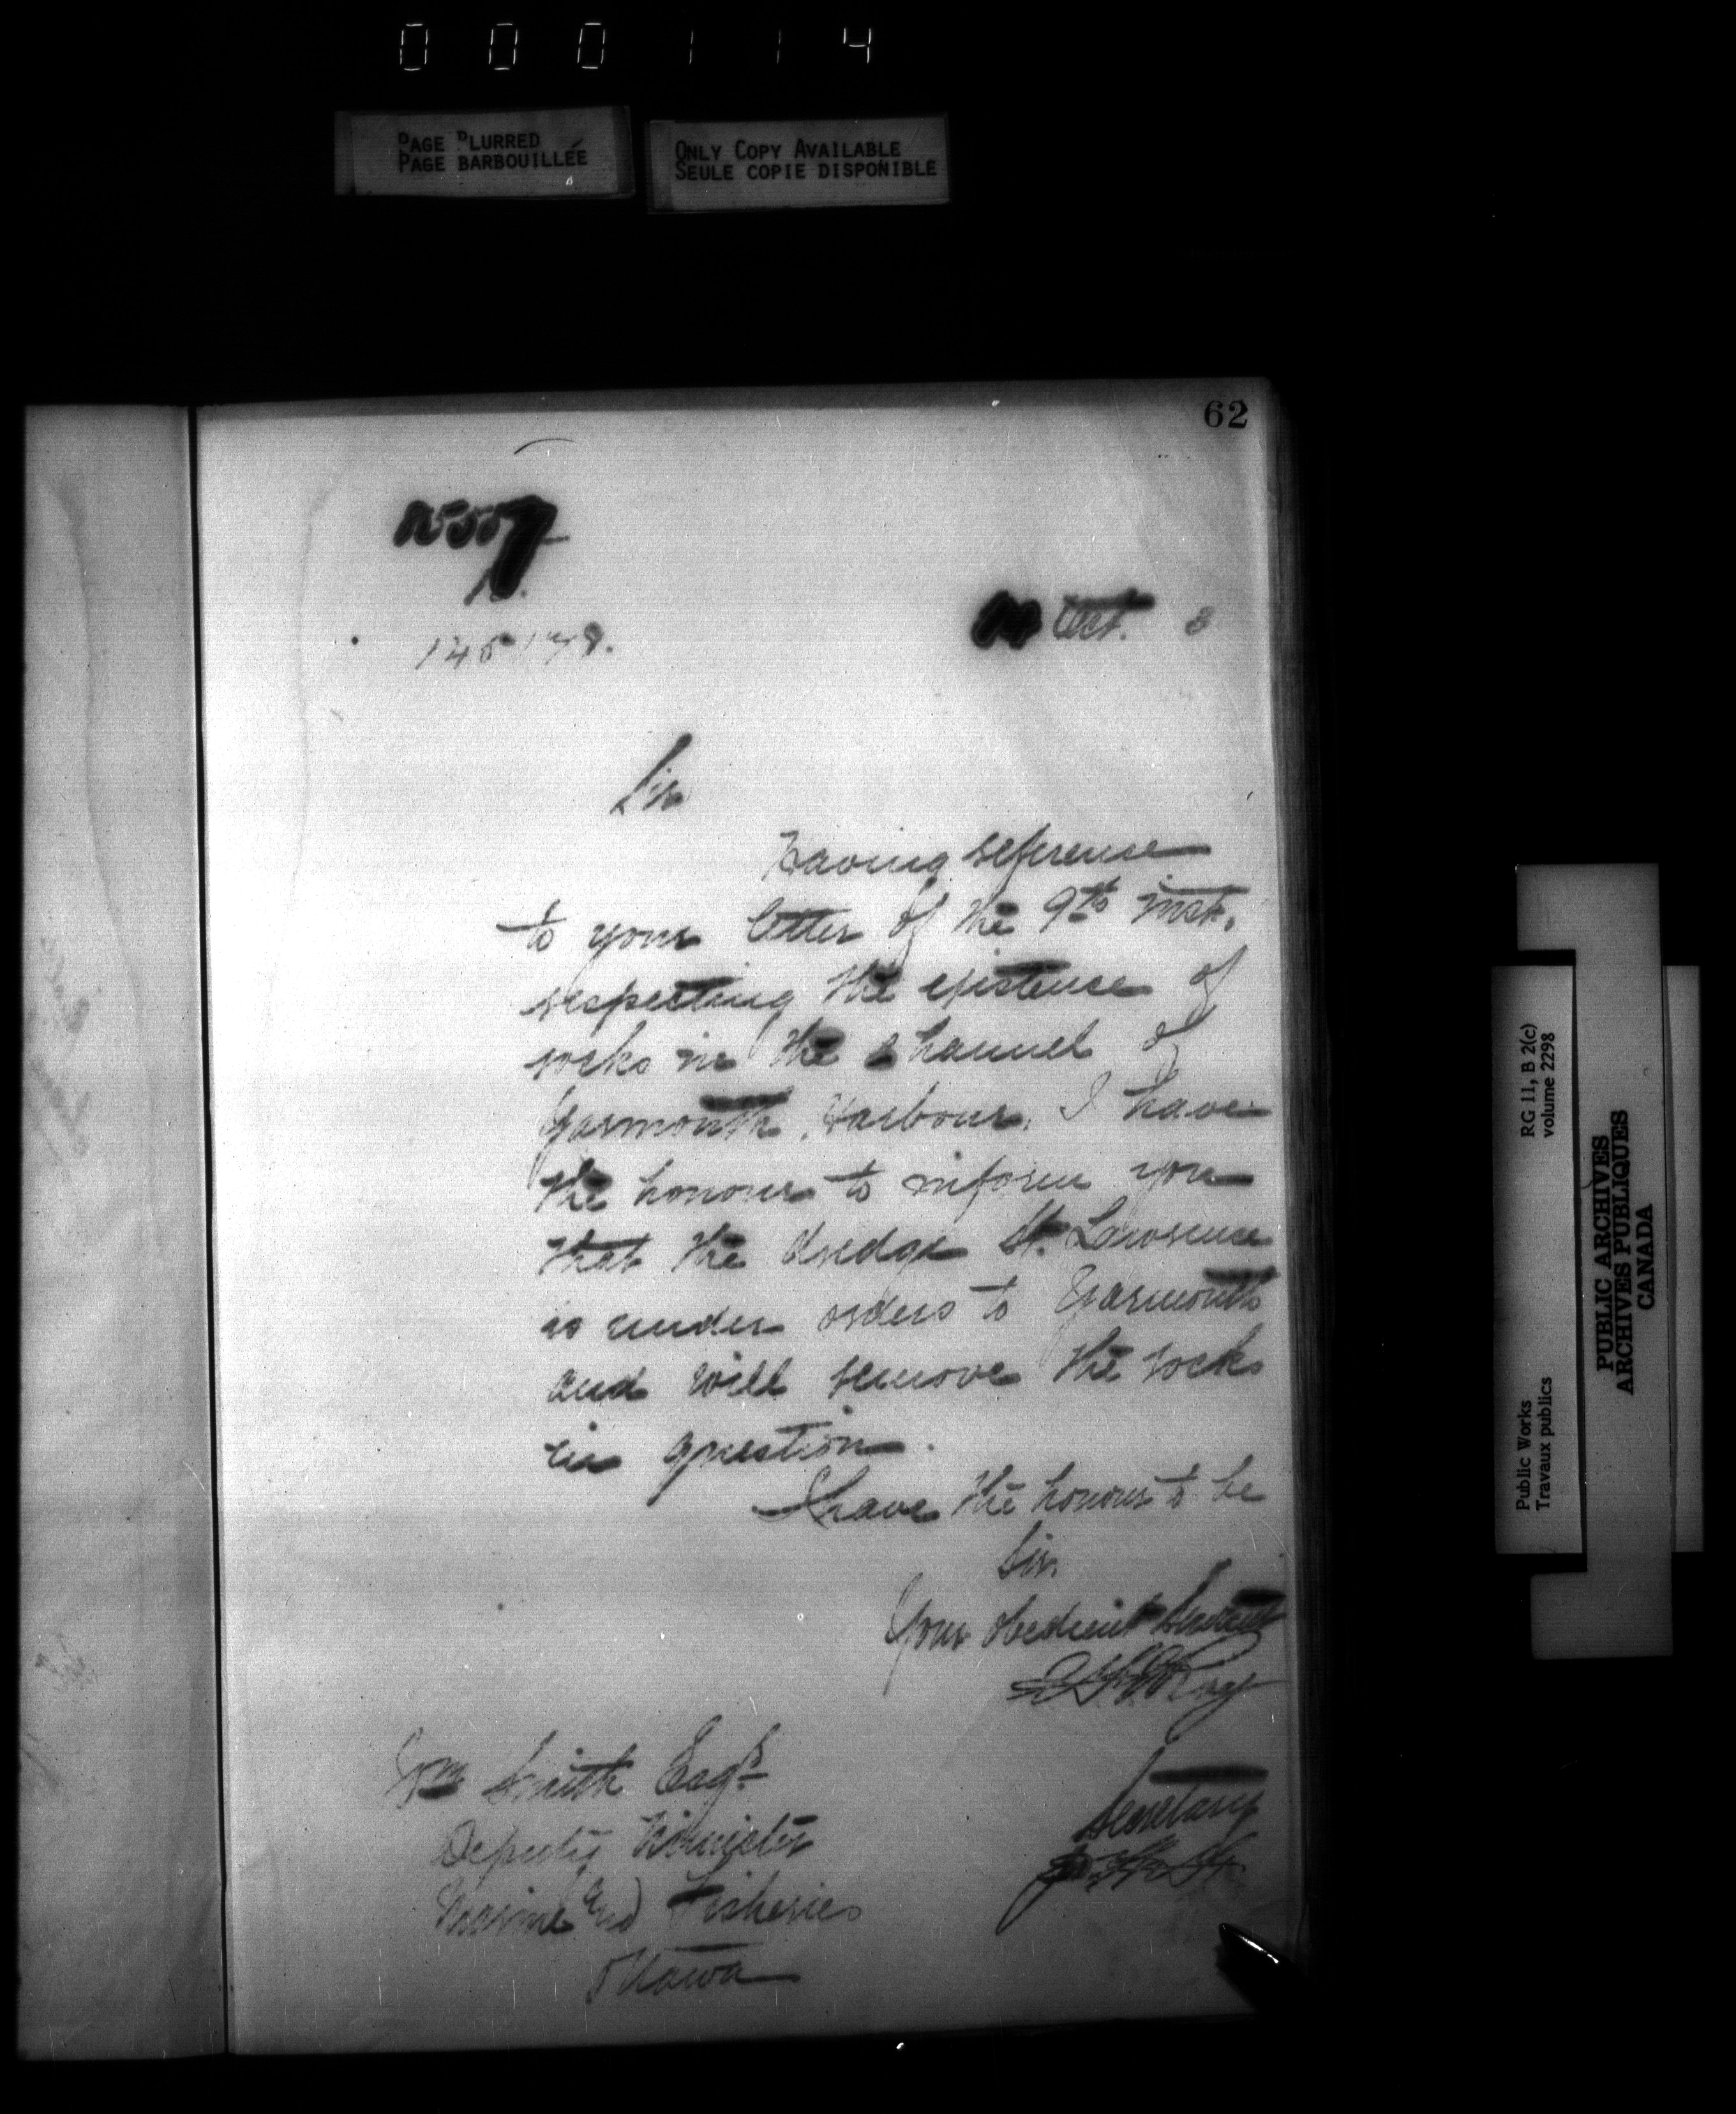 000114
PAGE BLURRED
PAGE BARBOUILLÉE
ONLY COPY AVAILABLE
SEULE COPIE DISPONIBLE
62
Oct. 3
Sir
Having reference
to your letter of the 9th inst.
respecting the existence of
rocks in the channel of
Yarmouth Harbour, I have
the honour to inform you
that the dredge St. Lawrence
is under orders to Yarmouth
and will remove the rocks
in question.
I have the honour to be
Sir
Your obedient Servant
Secretary
Wm Smith Esqr.
Deputy Minister
Marine and Fisheries
Ottawa
Public Works
Travaux publics
RG 11, B 2(c)
volume 2298
PUBLIC ARCHIVES
ARCHIVES PUBLIQUES
CANADA